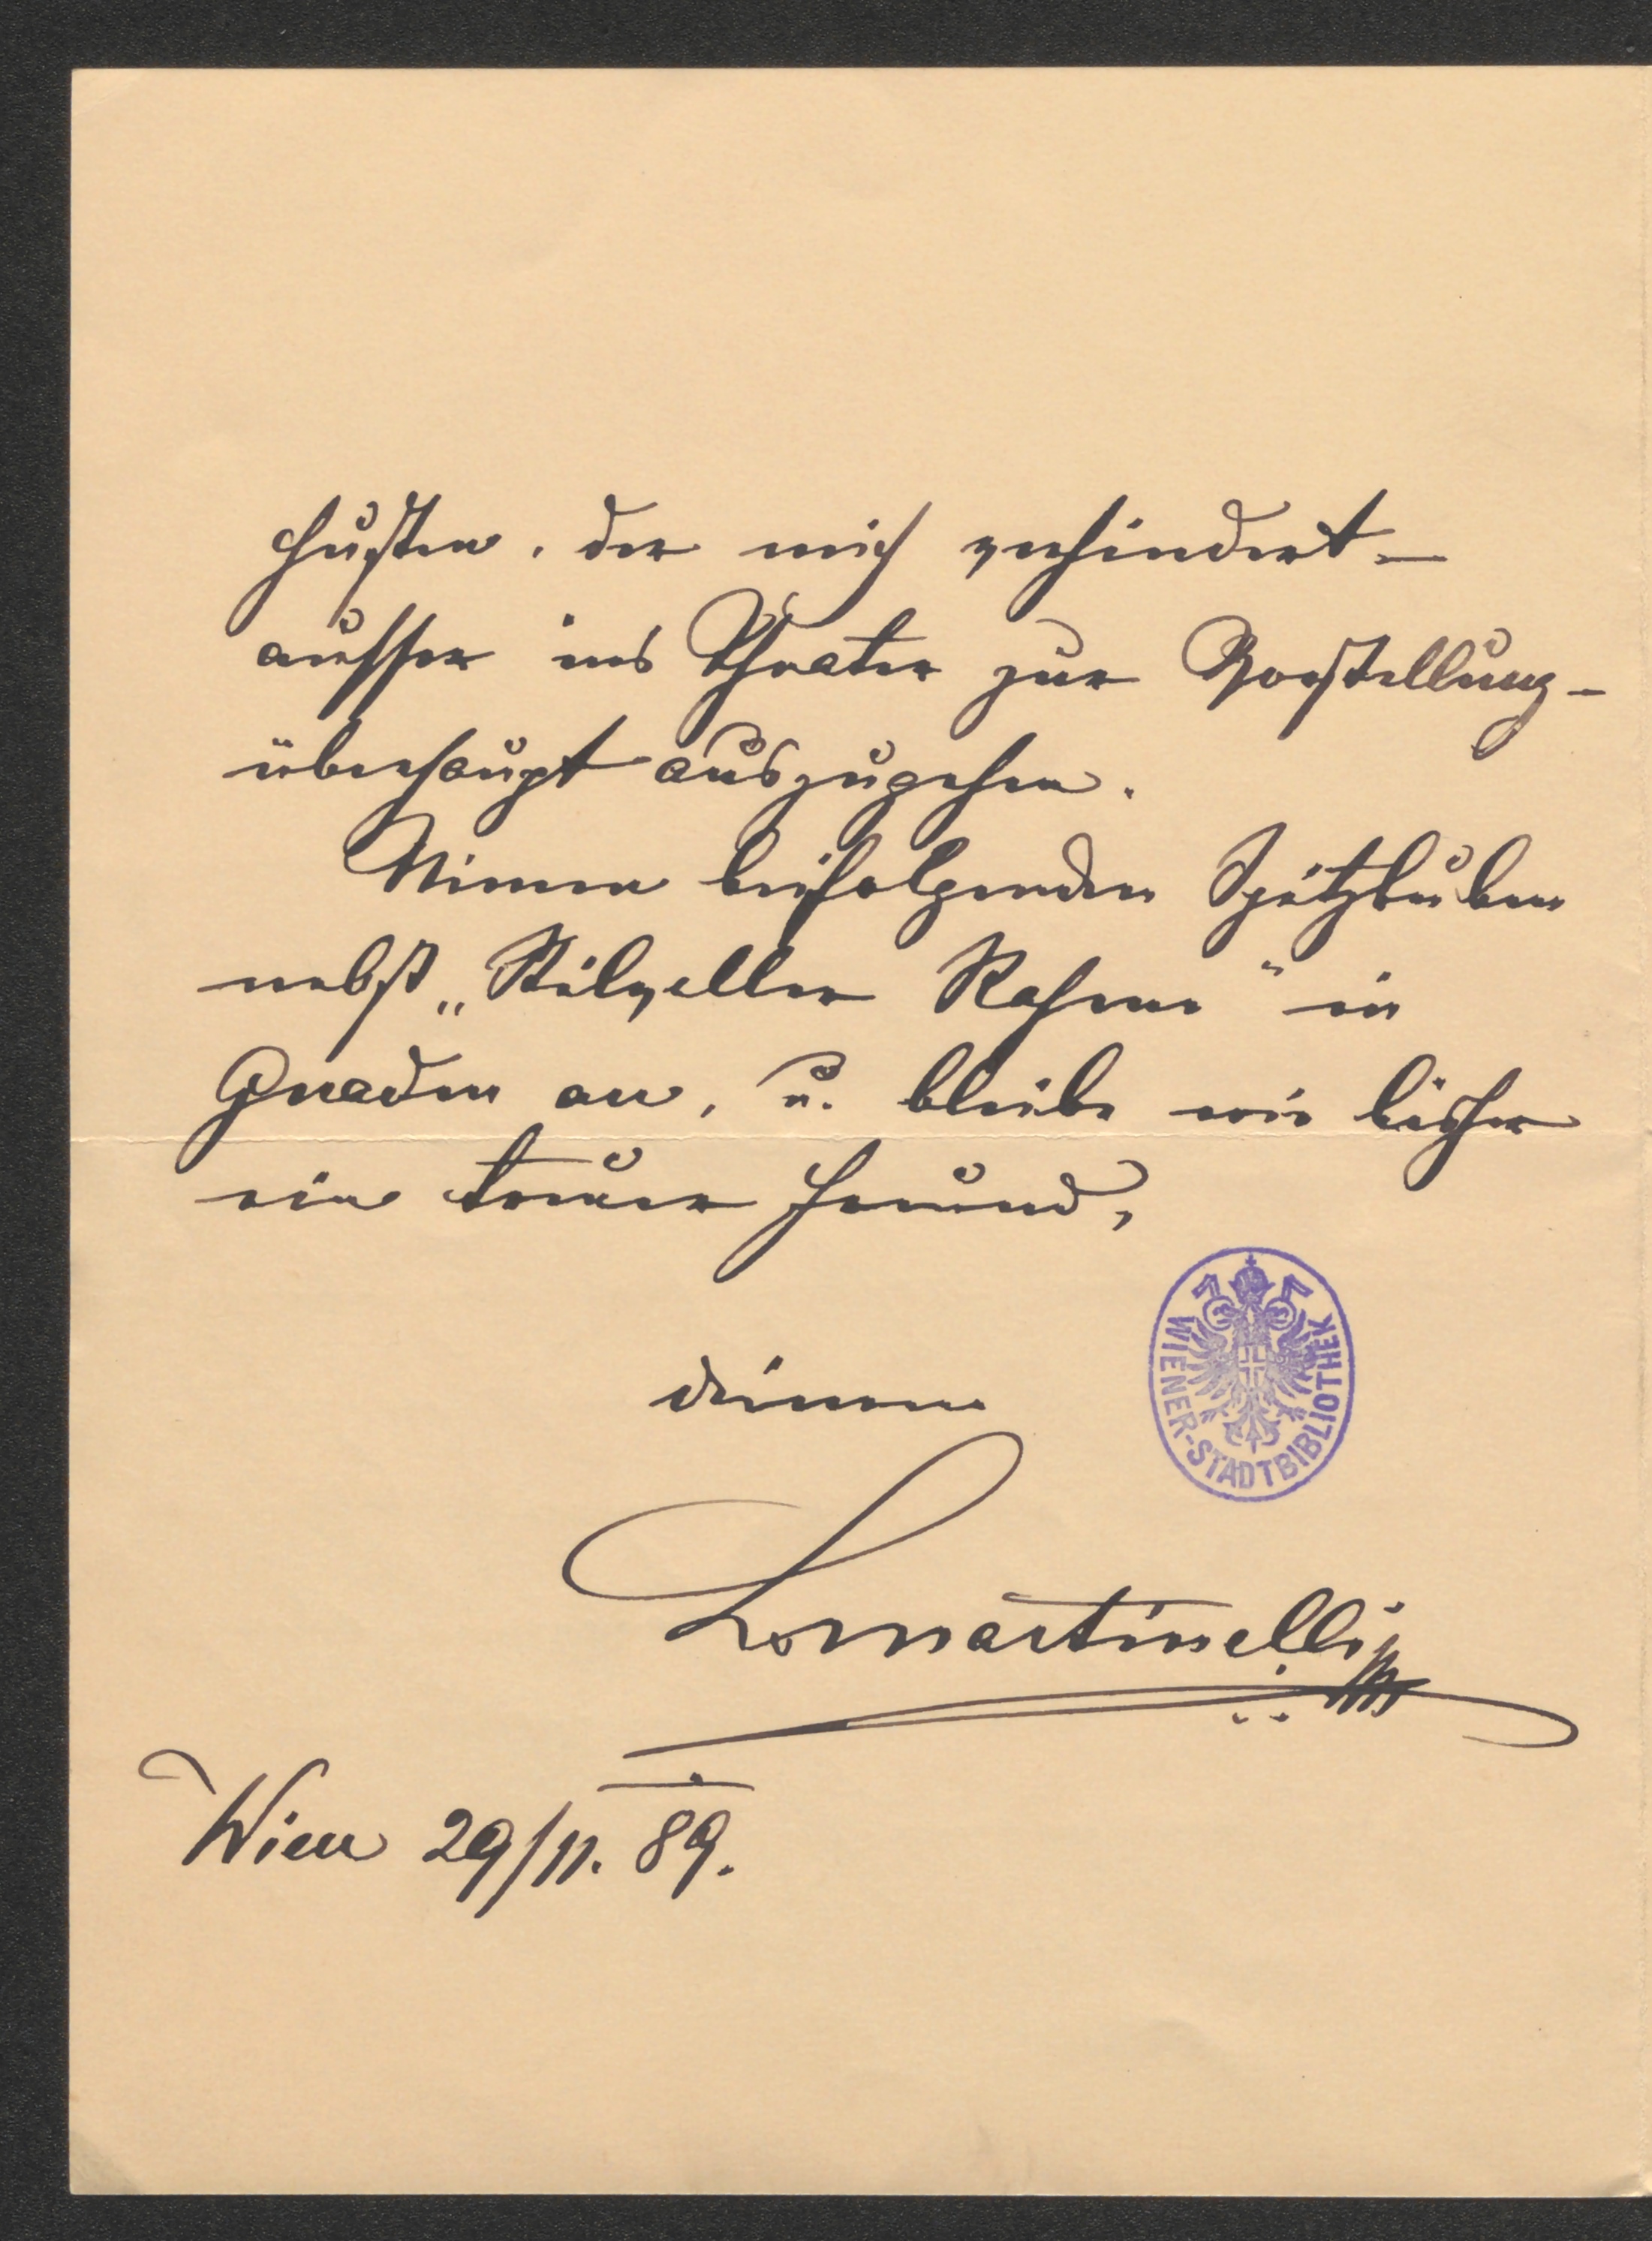 Husten, der mich verhindert –
ausser ins Theater zur Vorstellung –
überhaupt auszugehen.
Nimm beifolgenden Spitzbuben
nebst „Stilvoller Rahmen" in
Gnaden an, u. bleibe wie bisher
ein treuer Freund,
deinem
L. Martinelli
WIENER-STADTBIBLIOTHEK
Wien 29/11. 89.